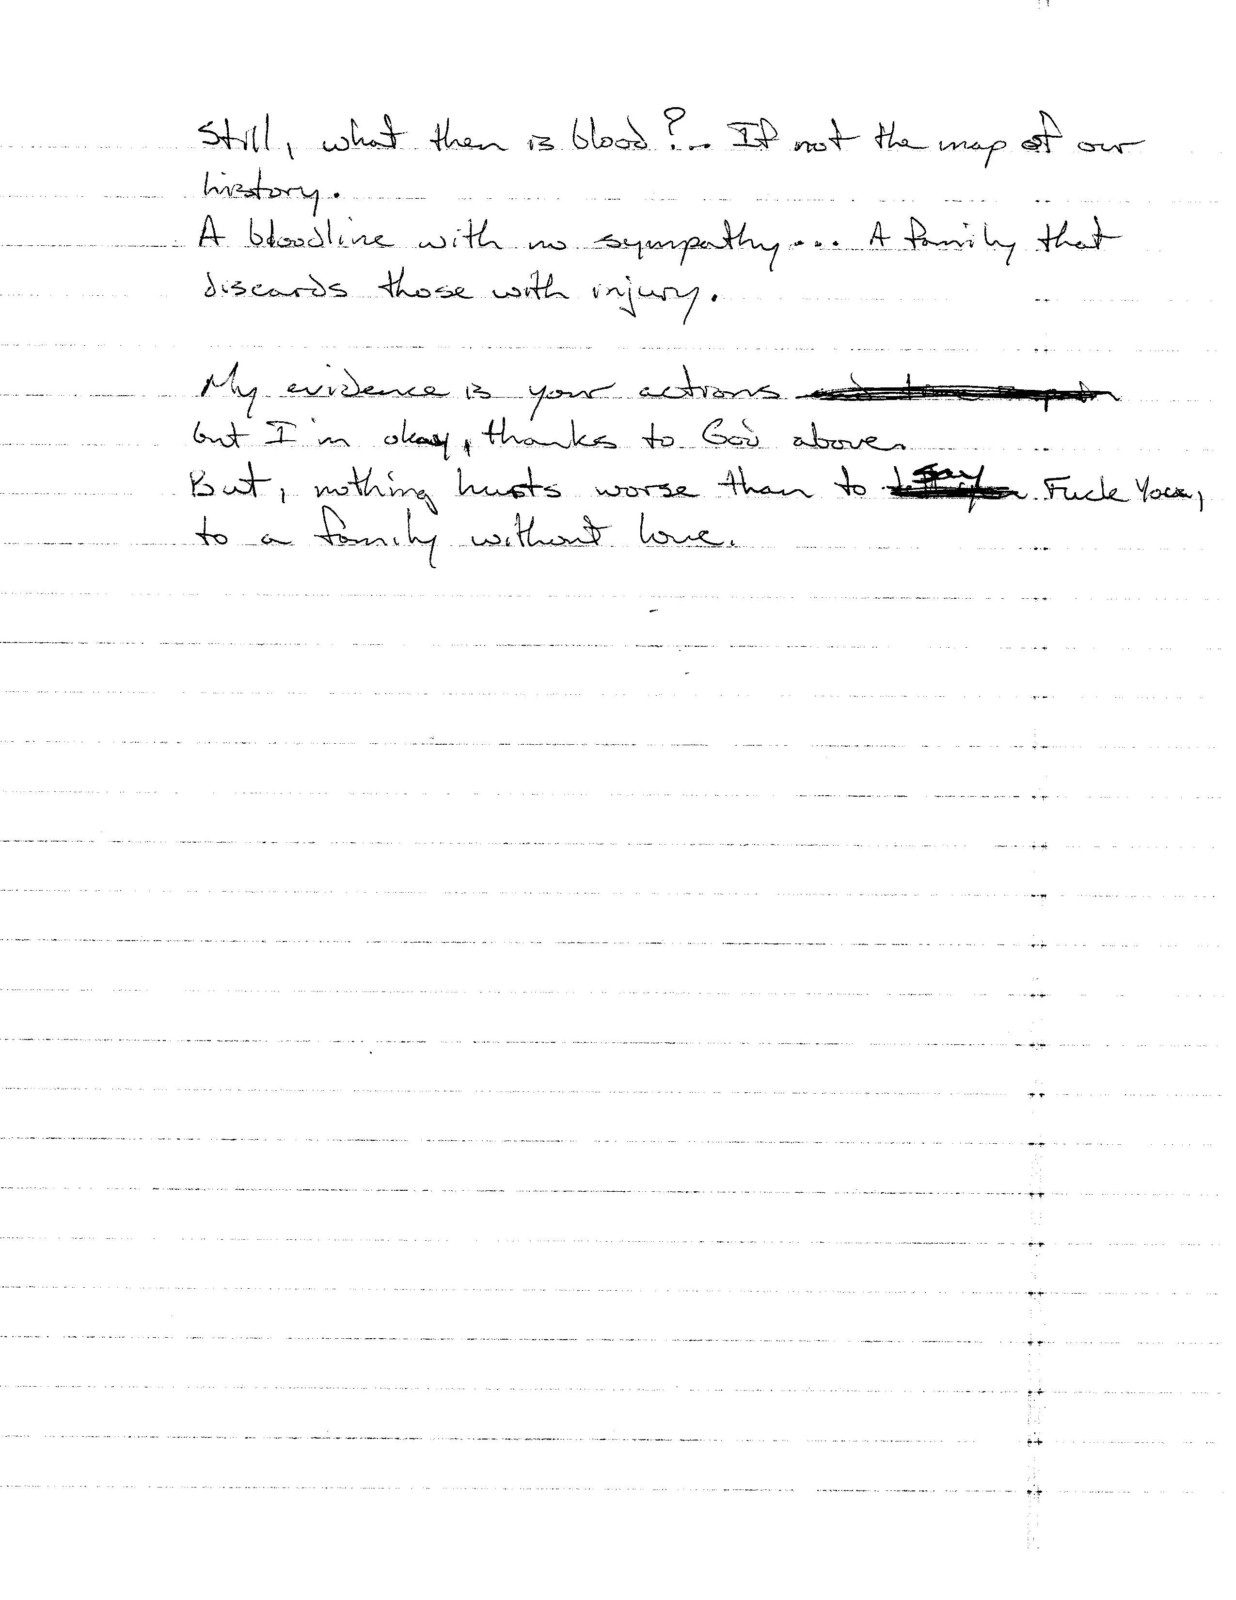 Still, what then is blood?... If not the map of our
history.
A bloodline with no sympathy... A family that
discards those with injury.
My evidence is your actions
but I'm okay, thanks to God above.
But, nothing hurts worse than to say Fuck You,
to a family without love.